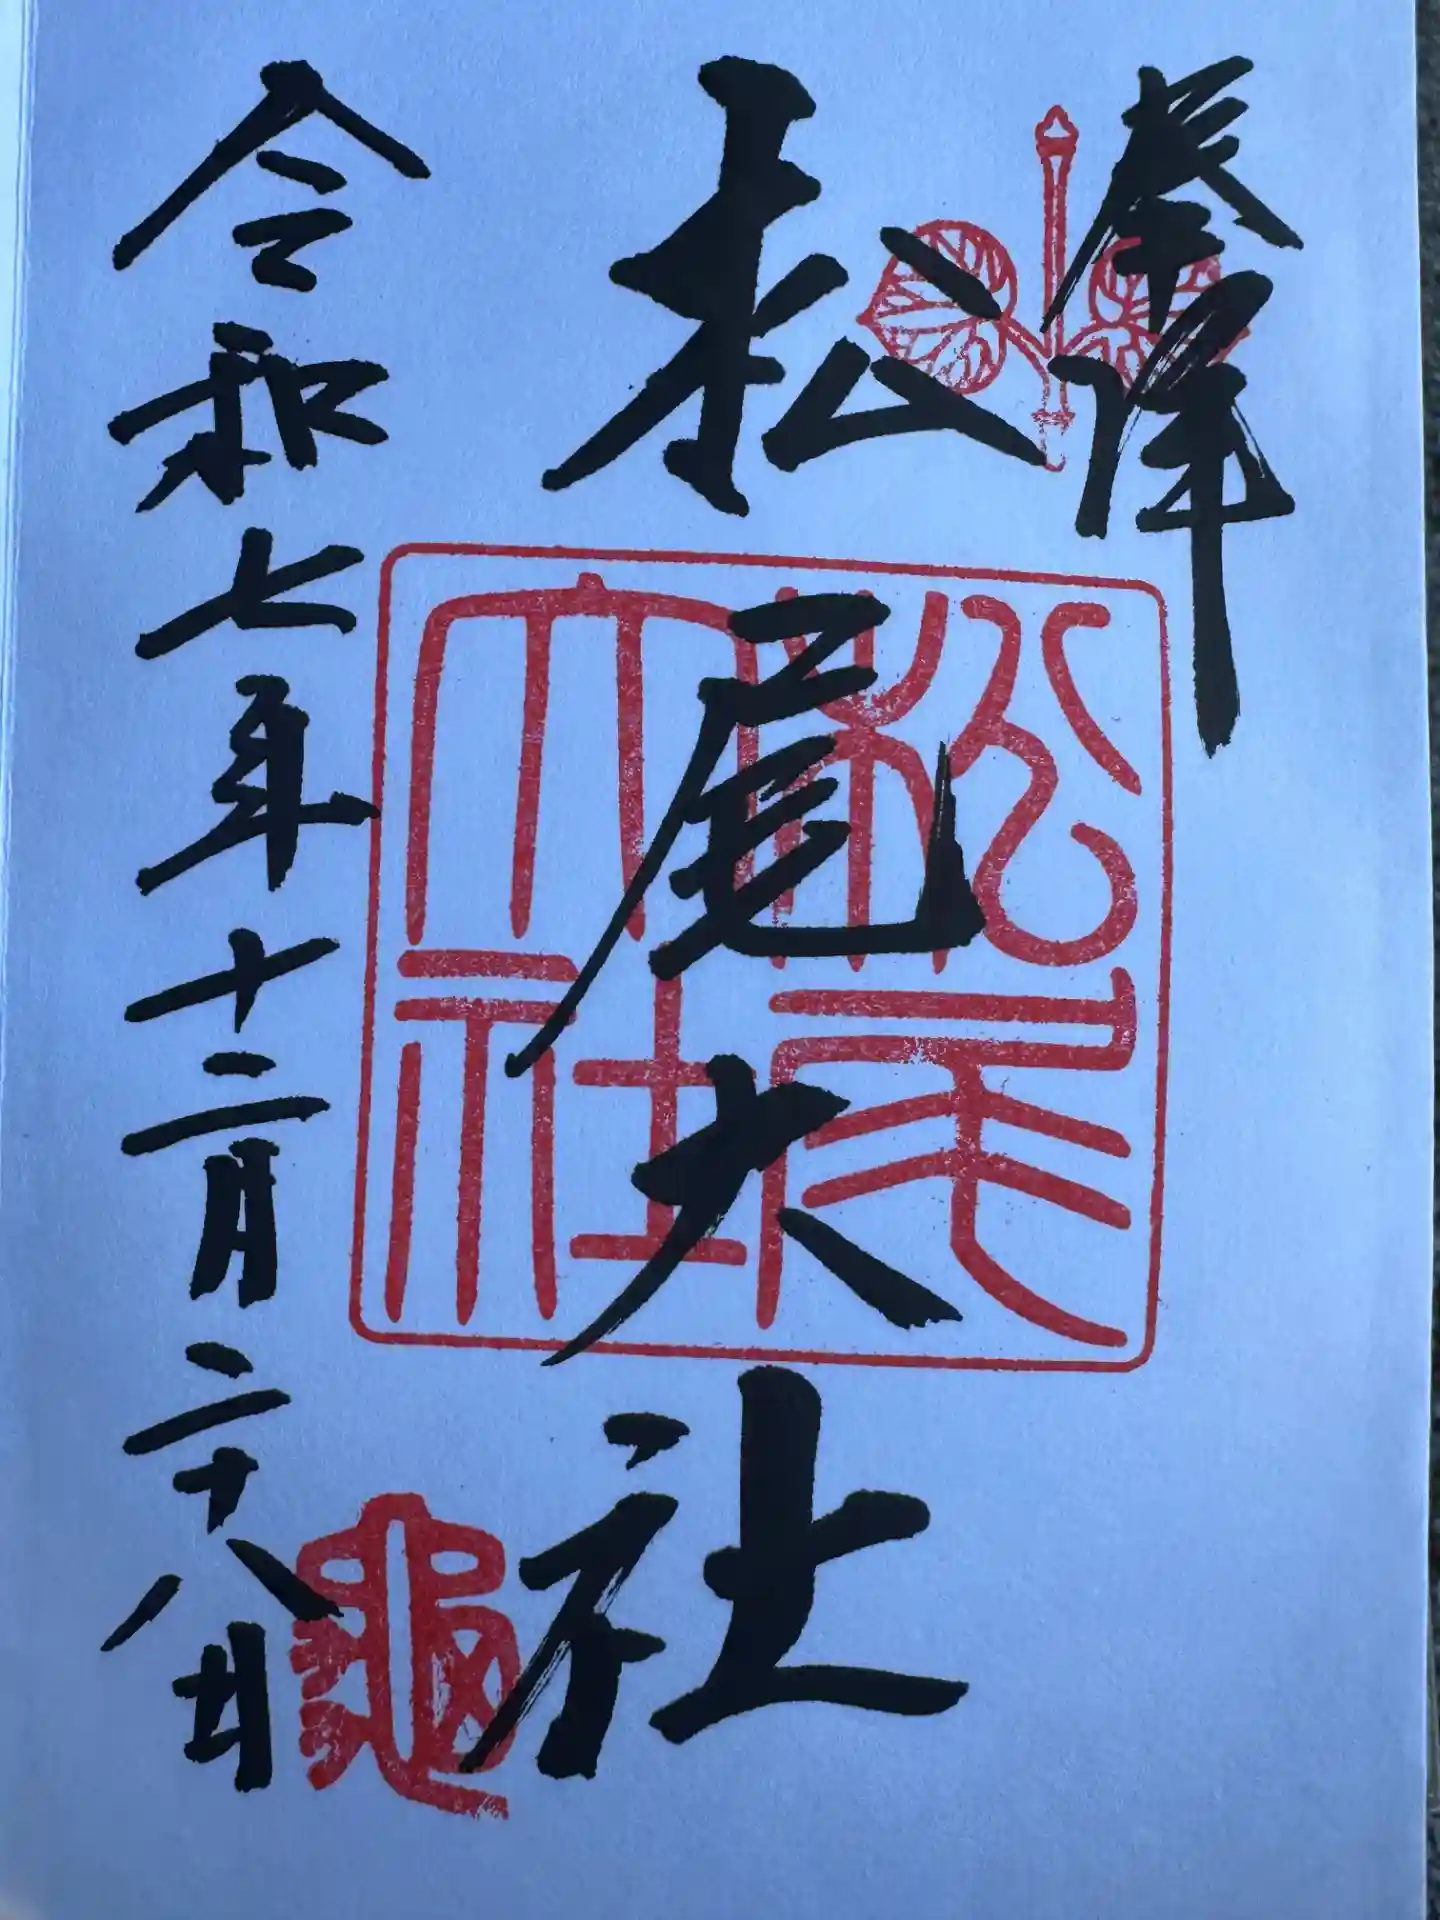 奉拝
松尾大社
令和七年十二月二十八日
松尾大社
龜